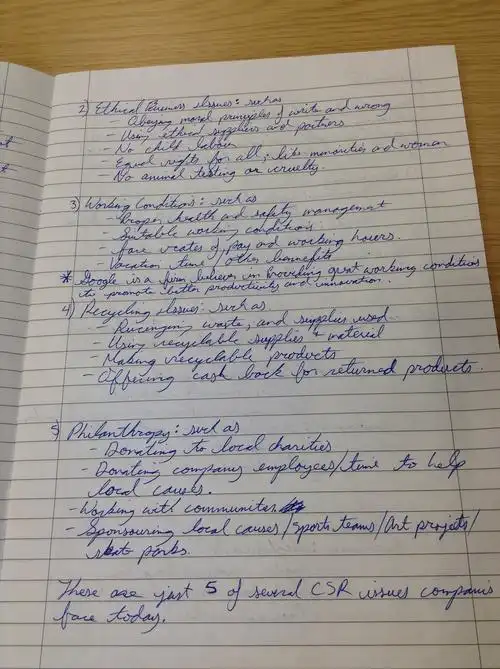 2) Ethical Business Issues: such as
- Obeying moral principles of write and wrong
- Using ethical suppliers and partners
- No child labour
- Equal rights for all, like minorities and woman
- No animal testing or cruelty.
3) Working Conditions: such as
- Proper health and safety management
- Suitable working conditions
- fare rates of pay and working hours.
- Vacation time / other benefits
* Google is a firm believer in providing great working conditions
to promote better productivity and innovation.
4) Recycling Issues: such as
- waste, and supplies used
- Using recyclable supplies + material
- Making recyclable products
- Offering cash back for returned products.
5) Philanthropy: such as
- Donating to local charities
- Donating company employees/time to help
local causes.
- Working with
- Sponsouring local causes/sports teams/Art projects/
parks.
These are just 5 of several CSR issues companies
face today.